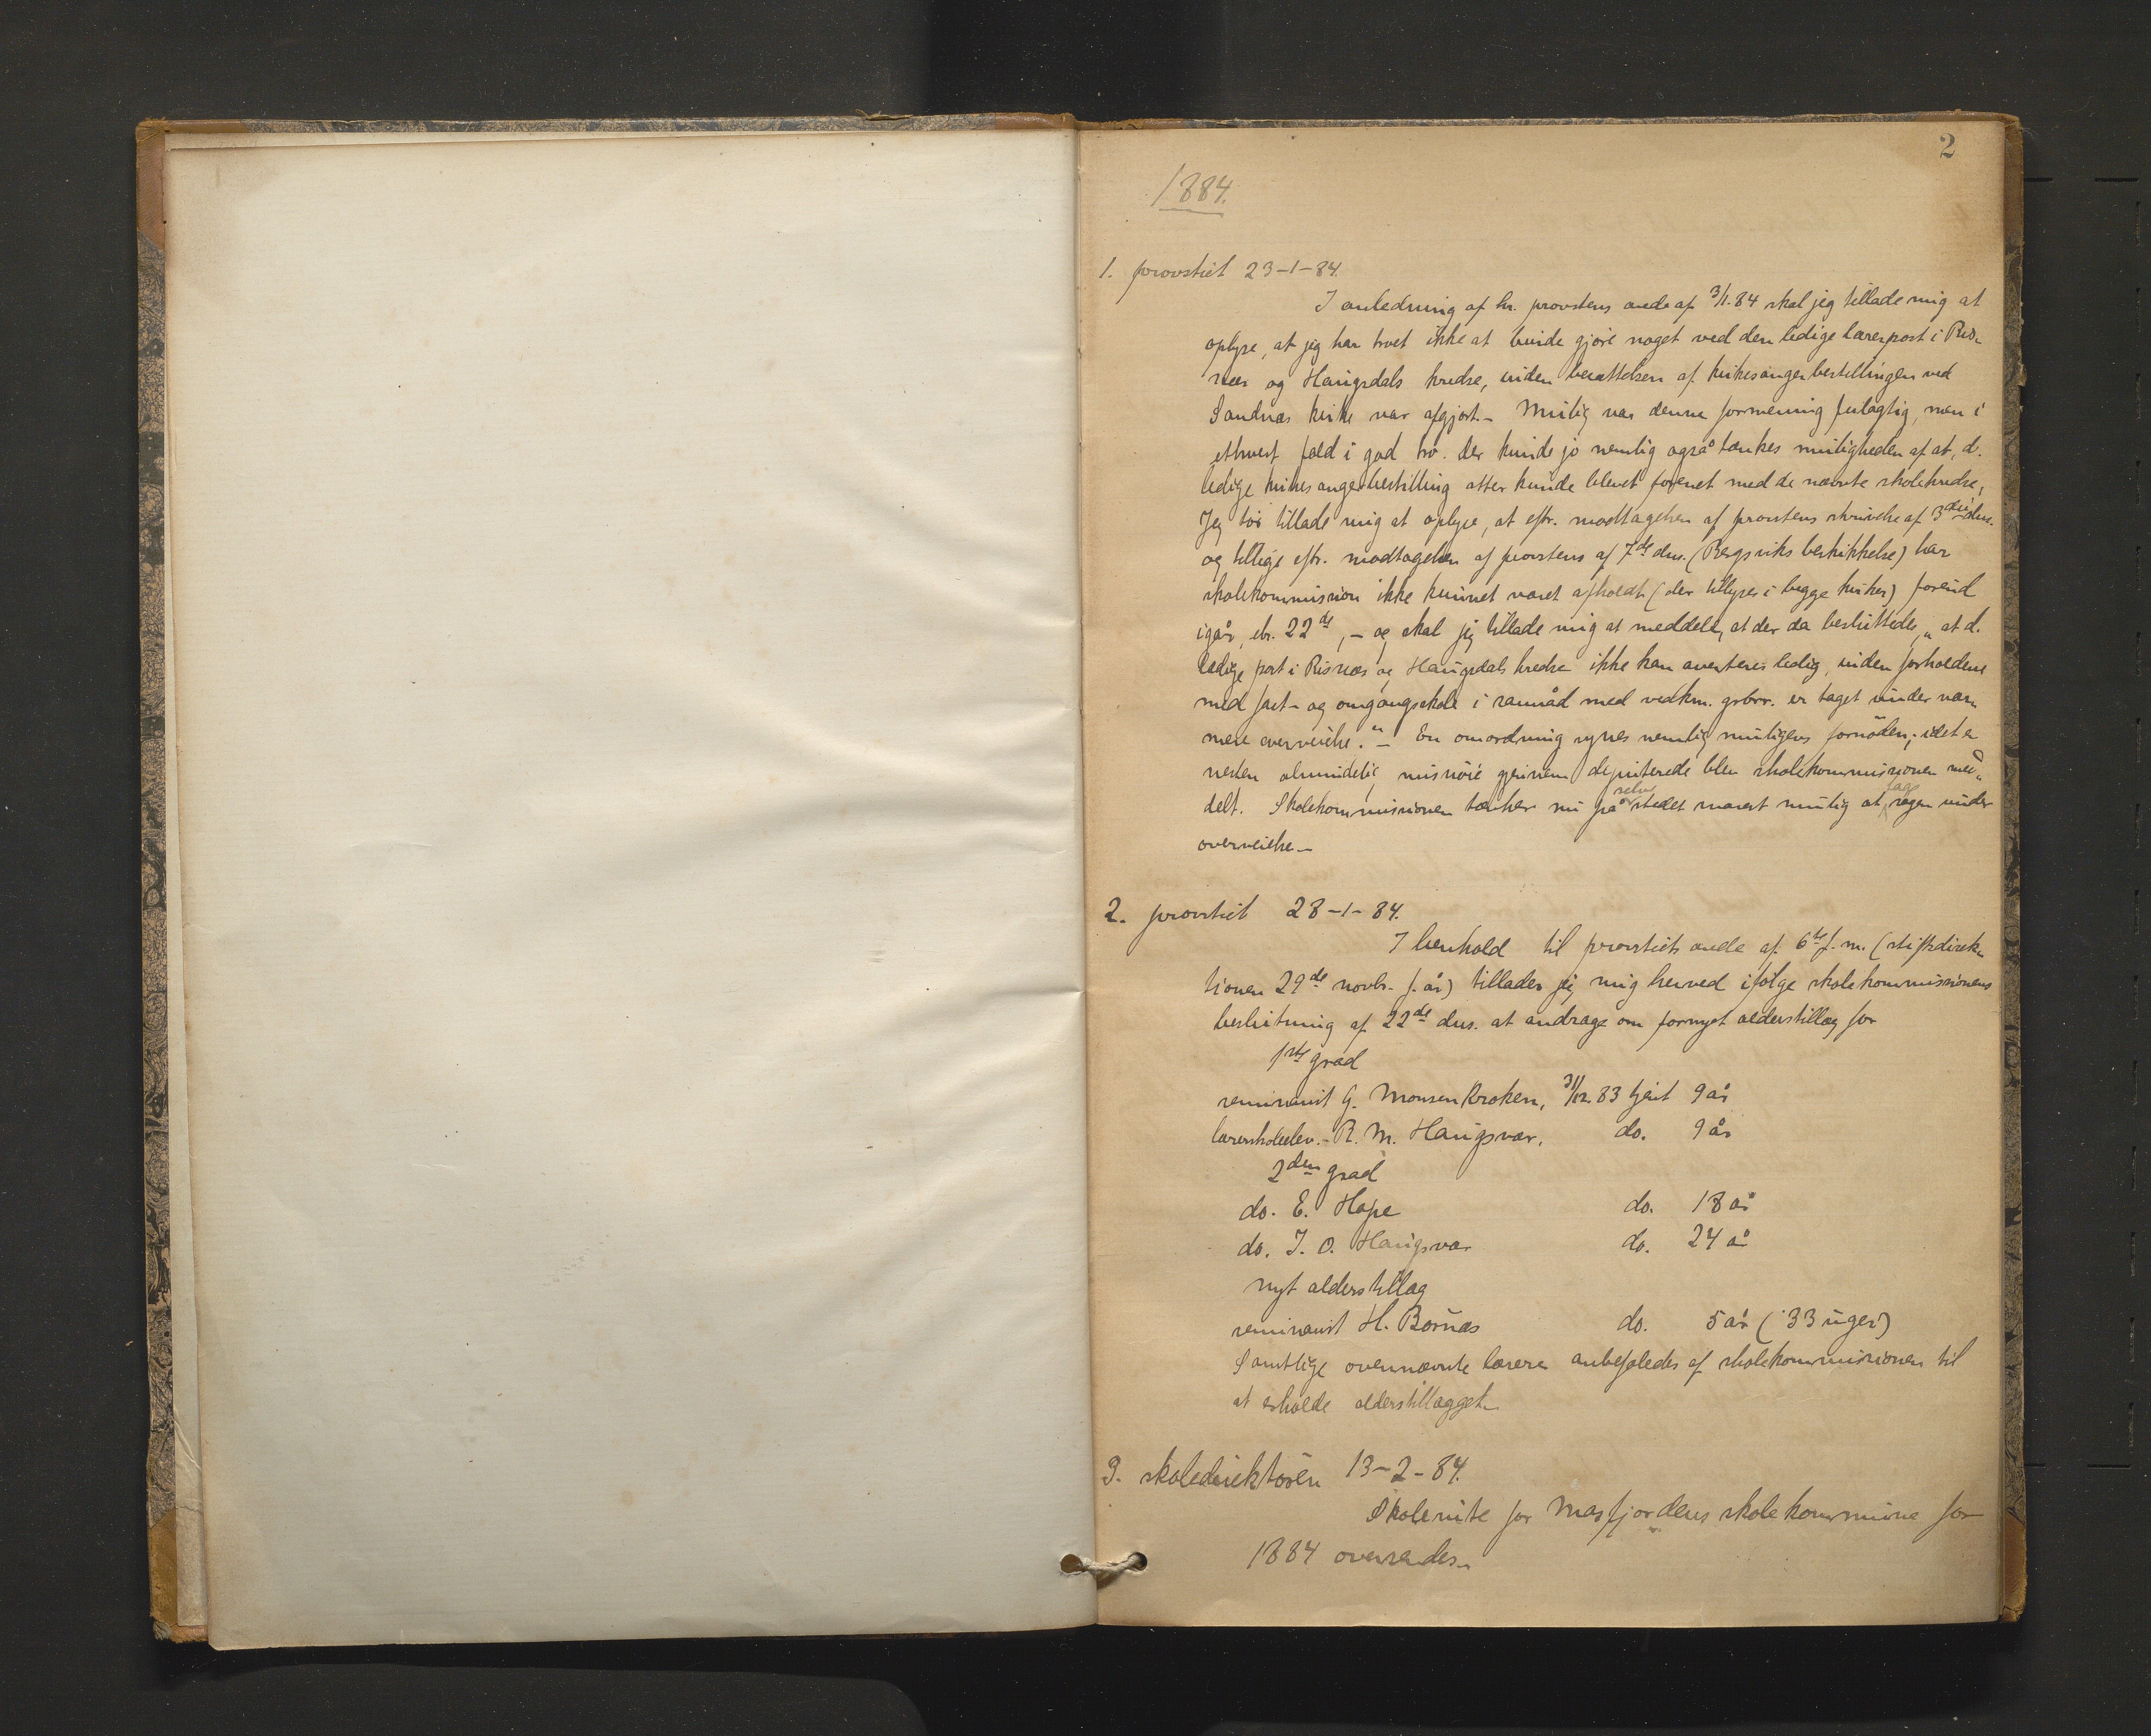 2
1884.
1. provstiet 23-1-84.
I anledning af hr. provstens ærede af 3/1.84 skal jeg tillade mig at
oplyse, at jeg har troet ikke at burde gjöre noget ved den ledige lærerpost i Ris„
næs og Haugsdals kredse, inden besættelsen af kirkesangerbestillingen ved
Sandnæs kirke var afgjort.- Mulig var denne formening feilagtig, men i
ethvert fald i god tro. Der kunde jo nemlig også tænkes muligheden af at, d.
ledige kirkesangerbestilling atter kunde blevet forenet med de nævnte skolekredse,
Jeg tör tillade mig at oplyse, at eftr. modtagelsen af provstens skrivelse af 3die ds.
og tillige eftr. modtagelsen af provstens af 7de ds. (Bergsviks beskikkelse) har
skolekommission ikke kunnet været afholdt (der tillyses i begge kirker) förend
igår, 22de, - og skal jeg tillade mig at meddele, at der da besluttedes „at d.
ledige post i Risnæs og Haugsdals kredse ikke kan averteres ledig, inden forholdene
med fast- og omgangsskole i samråd med vedkm. er taget under nær„
mere overveielse." - En omordning synes nemlig muligens fornöden; idet er
nesten almindelig misnöie gjennem deputerede blev skolekommissionen med„
delt. Skolekommissionen tænker nu på selve stedet snarest mulig at tage sagen under
overveielse -
2. provstiet 28-1-84.
I henhold til provstiets ærede af 6te f. m. (stiftsdirek„
tionen 29de novbr. f. år) tillader jeg mig herved ifölge skolekommissionens
beslutning af 22de ds. at andrage om fornyet alderstillæg for
1ste grad
seminarist G. Monsen Kroken, 31/12.83 tjent 9 år
lærerskoleelev.- R. M. Haugsvær, do. 9 år
2den grad
do. E. Hope do. 18 år
do. J. O. Haugsvær do. 24 år
nyt alderstillæg
seminarist H. Bornæs do. 5 år (33 uger)
Samtlige ovennævnte lærere anbefaledes af skolekommissionen til
at erholde alderstillægget.
3. skoledirektören 13-2-84.
Skolerute for Masfjordens skolekommune for
1884 oversendes.